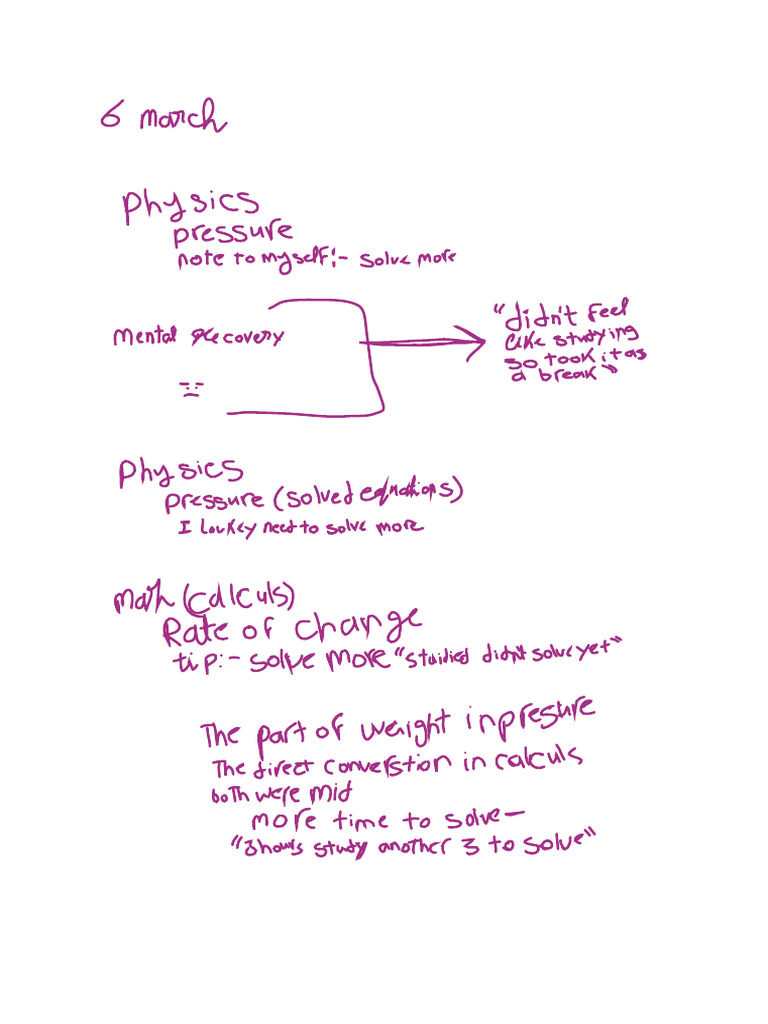 6 march
Physics
pressure
note to myself:- solve more
Mental Recovery
"didn't feel
like studying
so took it as
a break"
Physics
pressure (solved equations)
I Lowkey need to solve more
math (calculs)
Rate of change
tip:- solve more "stuidied didn't solve yet"
The part of weight in presure
The direct converstion in calculs
both were mid
more time to solve-
"3hours study another 3 to solve"